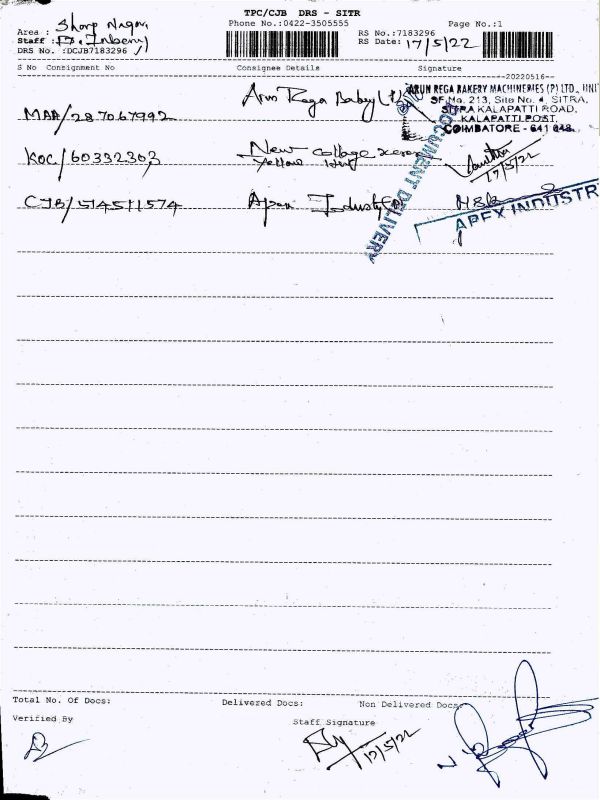 TPC/CJB DRS - SITR
Phone No.:0422-3505555
Page No.:1
Area : Sharp Nagar
RS No.:7183296
Staff :
RS Date: 17/5/22
DRS No. :DCJB7183296
S No Consignment No Consignee Details Signature
20220516
MAA/287067992 Arun Rega Bakey
ARUN REGA BAKERY MACHINERIES (P) LTD.,
SF No. 213, Site No. 4, SITRA,
SITRA KALAPATTI ROAD,
KALAPATTI POST,
COIMBATORE - 641 048.
DOCUMENT DELIVERY
KOC/60332303 New College xerox
Yellow
17/5/22
CJB/514511574 Apex Industy
APEX INDUSTR
Total No. Of Docs: Delivered Docs: Non Delivered Docs
Verified By
Staff Signature
17/5/22